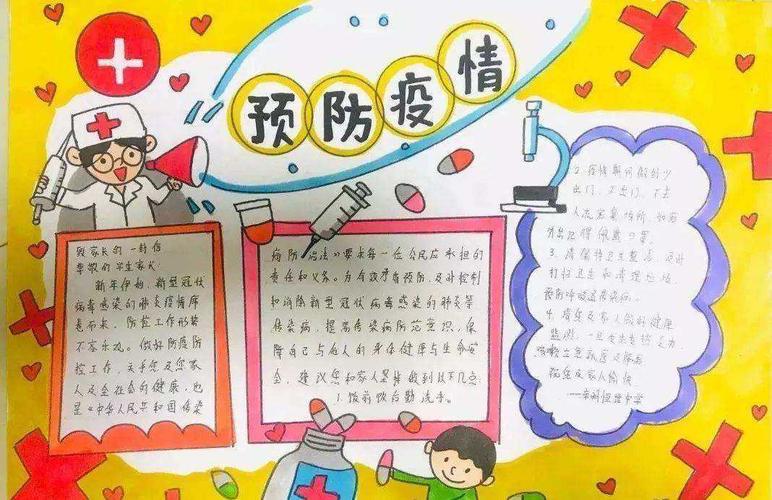 预防疫情
致家长的一封信
尊敬的学生家长:
新年伊始,新型冠状
病毒感染的肺炎疫情席
卷而来,防控工作形势
不容乐观。做好防疫防
控工作,关乎您及您家
人及全社会的健康,也
是《中华人民共和国传染
病防治法》要求每一位公民应承担的
责任和义务。为有效矛盾预防,及时控制
和消除新型冠状病毒感染的肺炎等
传染病,提高传染病防范意识,保
障自己与他人的身体健康与生命安
全,建议您和家人坚持做到以下几点:
1.饭前饭后勤洗手。
2.疫情期间做到少
出门、不出门、不去
人流密集场所,如有
外出记得佩戴口罩。
3.居室
打扫卫生和清理垃圾
预防呼吸道传染病。
4.增强及家人的健康
监测,一旦发生发热乏力
咳嗽立急就医及隔离